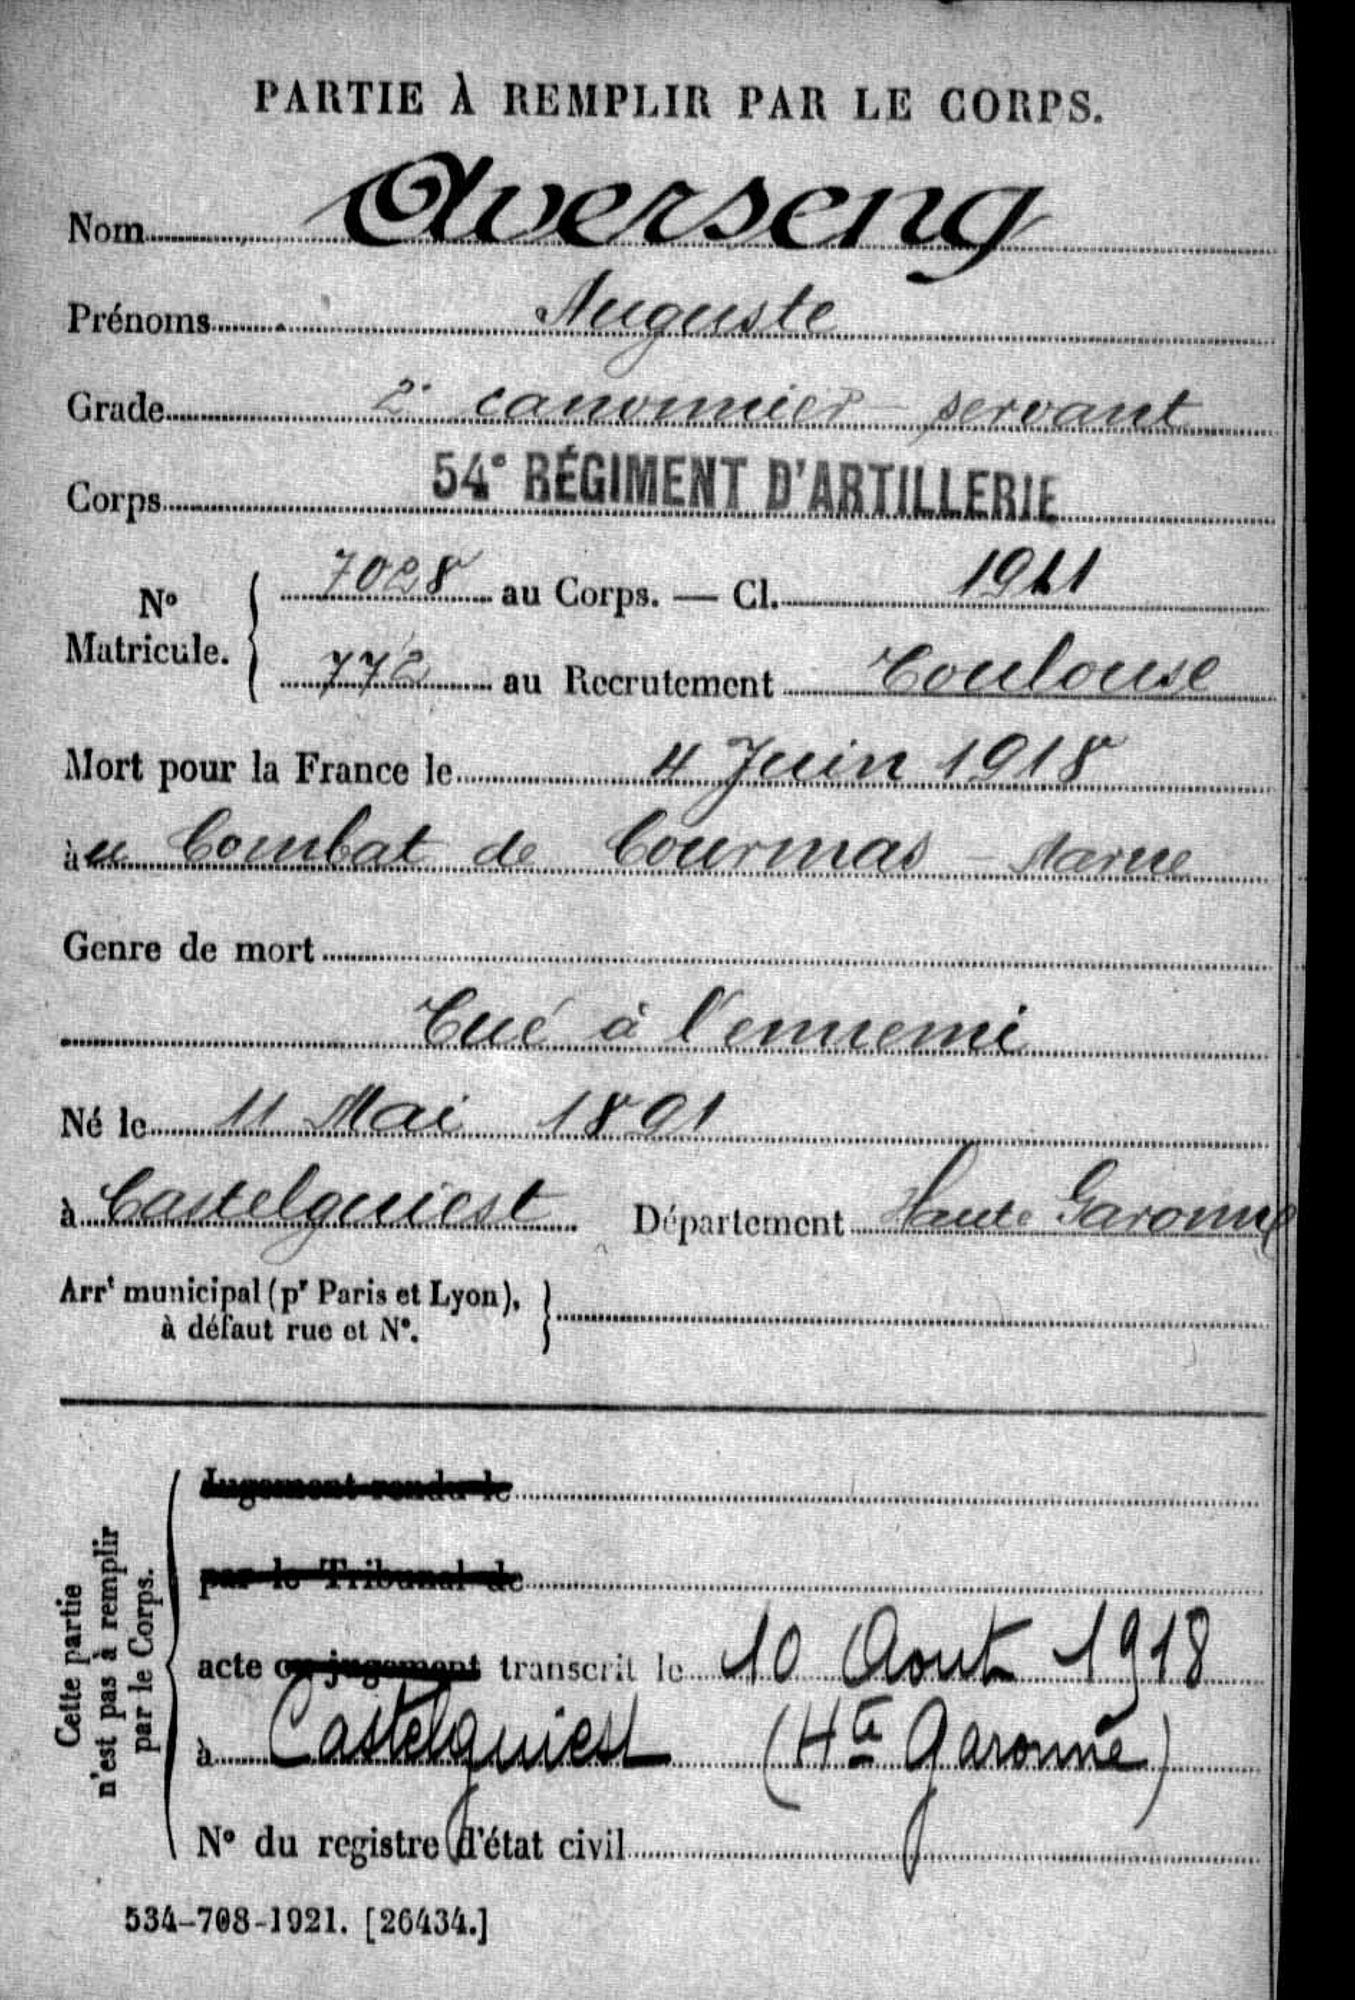 PARTIE À REMPLIR PAR LE CORPS.
Nom Averseng
Prénoms Auguste
Grade 2e canonnier servant
Corps 54e RÉGIMENT D'ARTILLERIE
No Matricule. 7028 au Corps. — Cl. 1911
772 au Recrutement Toulouse
Mort pour la France le 4 Juin 1918
au Combat de Courmas Marne
Genre de mort
Tué à l'ennemi
Né le 11 Mai 1891
à Castelguiest Département Haute Garonne
Arrt municipal (pr Paris et Lyon),
à défaut rue et No.
Cette partie n'est pas à remplir par le Corps.
Jugement rendu le
par le Tribunal de
acte ou jugement transcrit le 10 Aout 1918
à Castelguiest (Hte Garonne)
No du registre d'état civil
534-708-1921. [26434.]